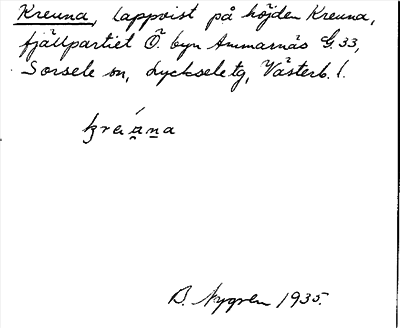 Kreuna, lappvist på höjden Kreuna,
fjällpartiet Ö. byn Ammarnäs G. 33,
Sorsele sn, Lyckseletg, Västerb. l.
B. Nygren 1935.